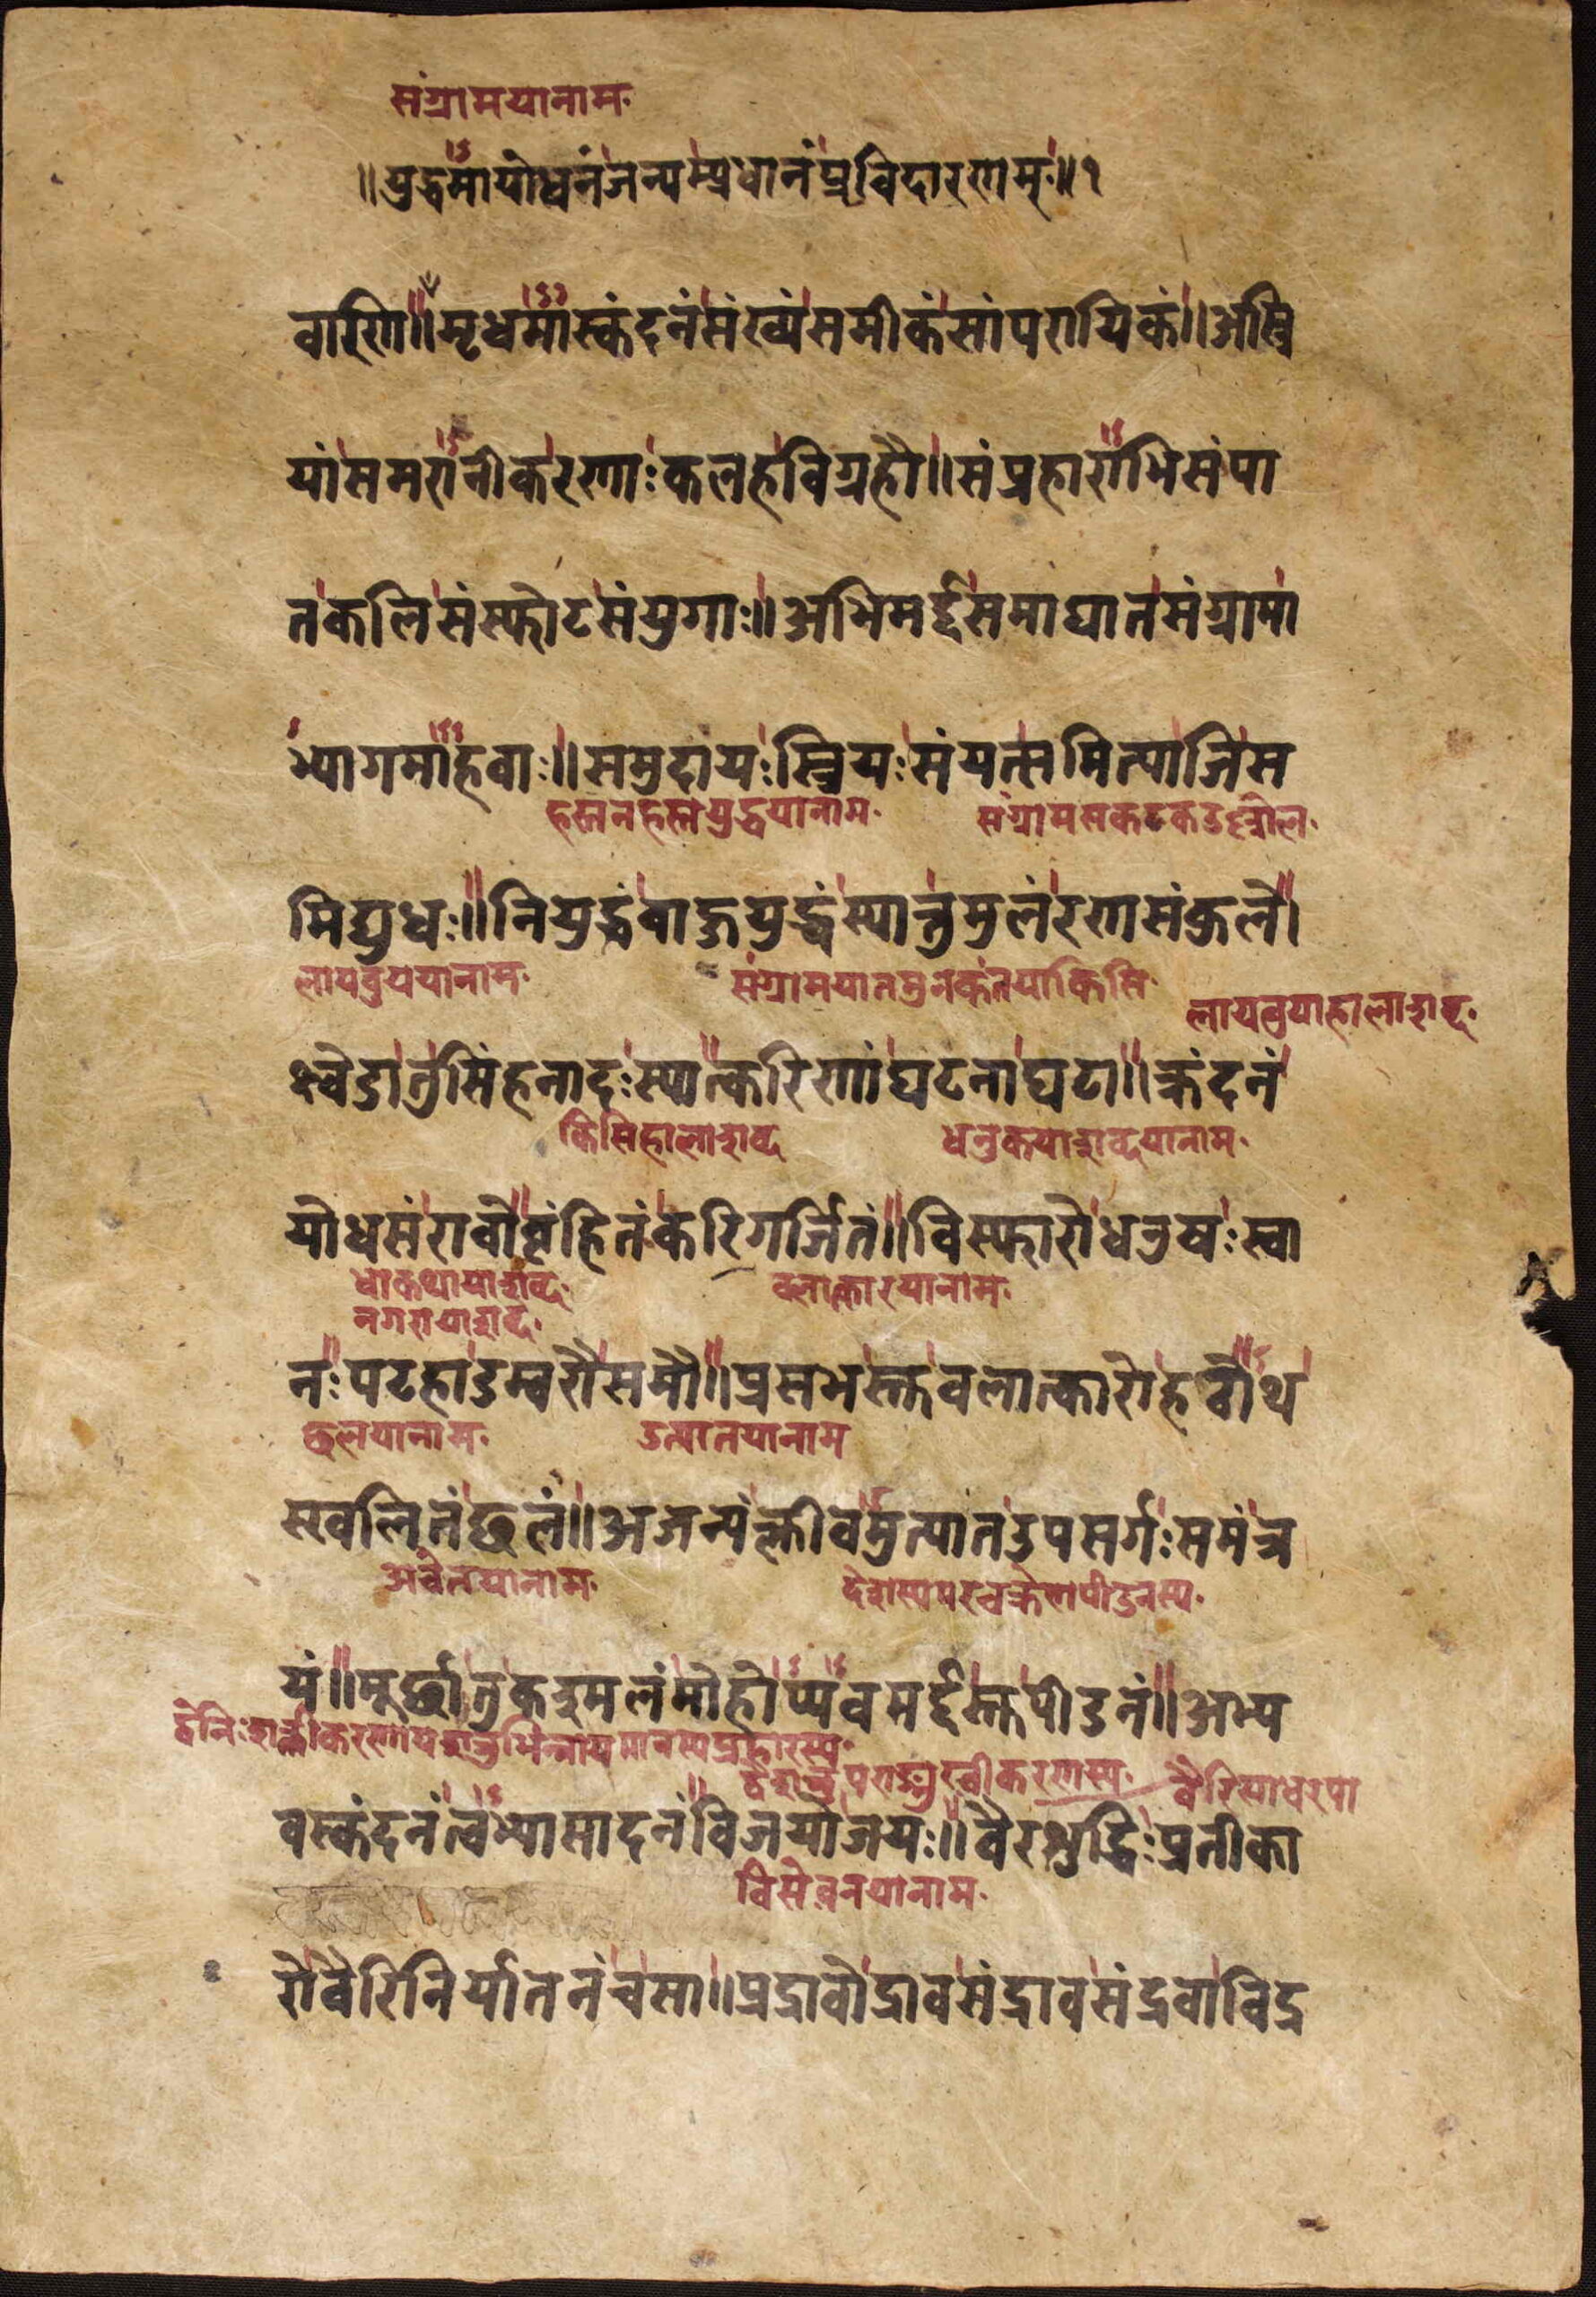 संग्रामयानाम
॥युद्धमायोधनंजन्यम्प्रधानंप्रविदारणम्॥१
वारिणि॥मृधमास्कंदनंसंख्यंसमीकंसांपरायिकं॥अस्त्रि
यांसमरानीकरणाःकलहविग्रहौ॥संप्रहाराभिसंपा
तकलिसंस्फोटसंयुगाः॥अभिमर्द्दसमाघातसंग्रामा
भ्यागमाहवाः॥समुदायःस्त्रियःसंयत्समित्याजिस
हस्तनहस्तयुद्धयानाम संग्रामसकटक
मिद्युधः॥नियुद्धंबाहुयुद्धंस्यात्तुमुलंरणसंकुले।
लायवुययानाम संग्रामयातमुनकंतयाकिसि
लायवुयाहालाशब्द
क्ष्वेडातुसिंहनादःस्यात्करिणांघटनाघटा॥क्रंदनं
किसिहालाशब्द धनुकयाशब्दयानाम
योधसंरावोबृंहितंकरिगर्जितं॥विस्फारोधनुषःस्वा
धोकथायाशब्द वलात्कारयानाम
नगरायाशब्द
नःपटहाडम्बरौसमौ॥प्रसभस्तुवलात्कारोहठोथ
छलयानाम उत्पातयानाम
स्खलितंछलं॥अजन्यंक्लीवमुत्पातउपसर्गःसमंत्र
अचेतयानाम देशस्यपरचक्रेणपीडनस्य
यं॥मूर्छातुकश्मलंमोहोप्यवमर्द्दस्तुपीडनं॥अभ्य
प्रहारस्य
पराङ्मुखीकरणस्य वैरिसाधरपा
वस्कंदनंत्वभ्यासादनंविजयोजयः॥वैरशुद्धिःप्रतीका
विसेवनयानाम
रोवैरिनिर्यातनंचसा॥प्रद्रावोद्रावसंद्रावसंद्रवाविद्र